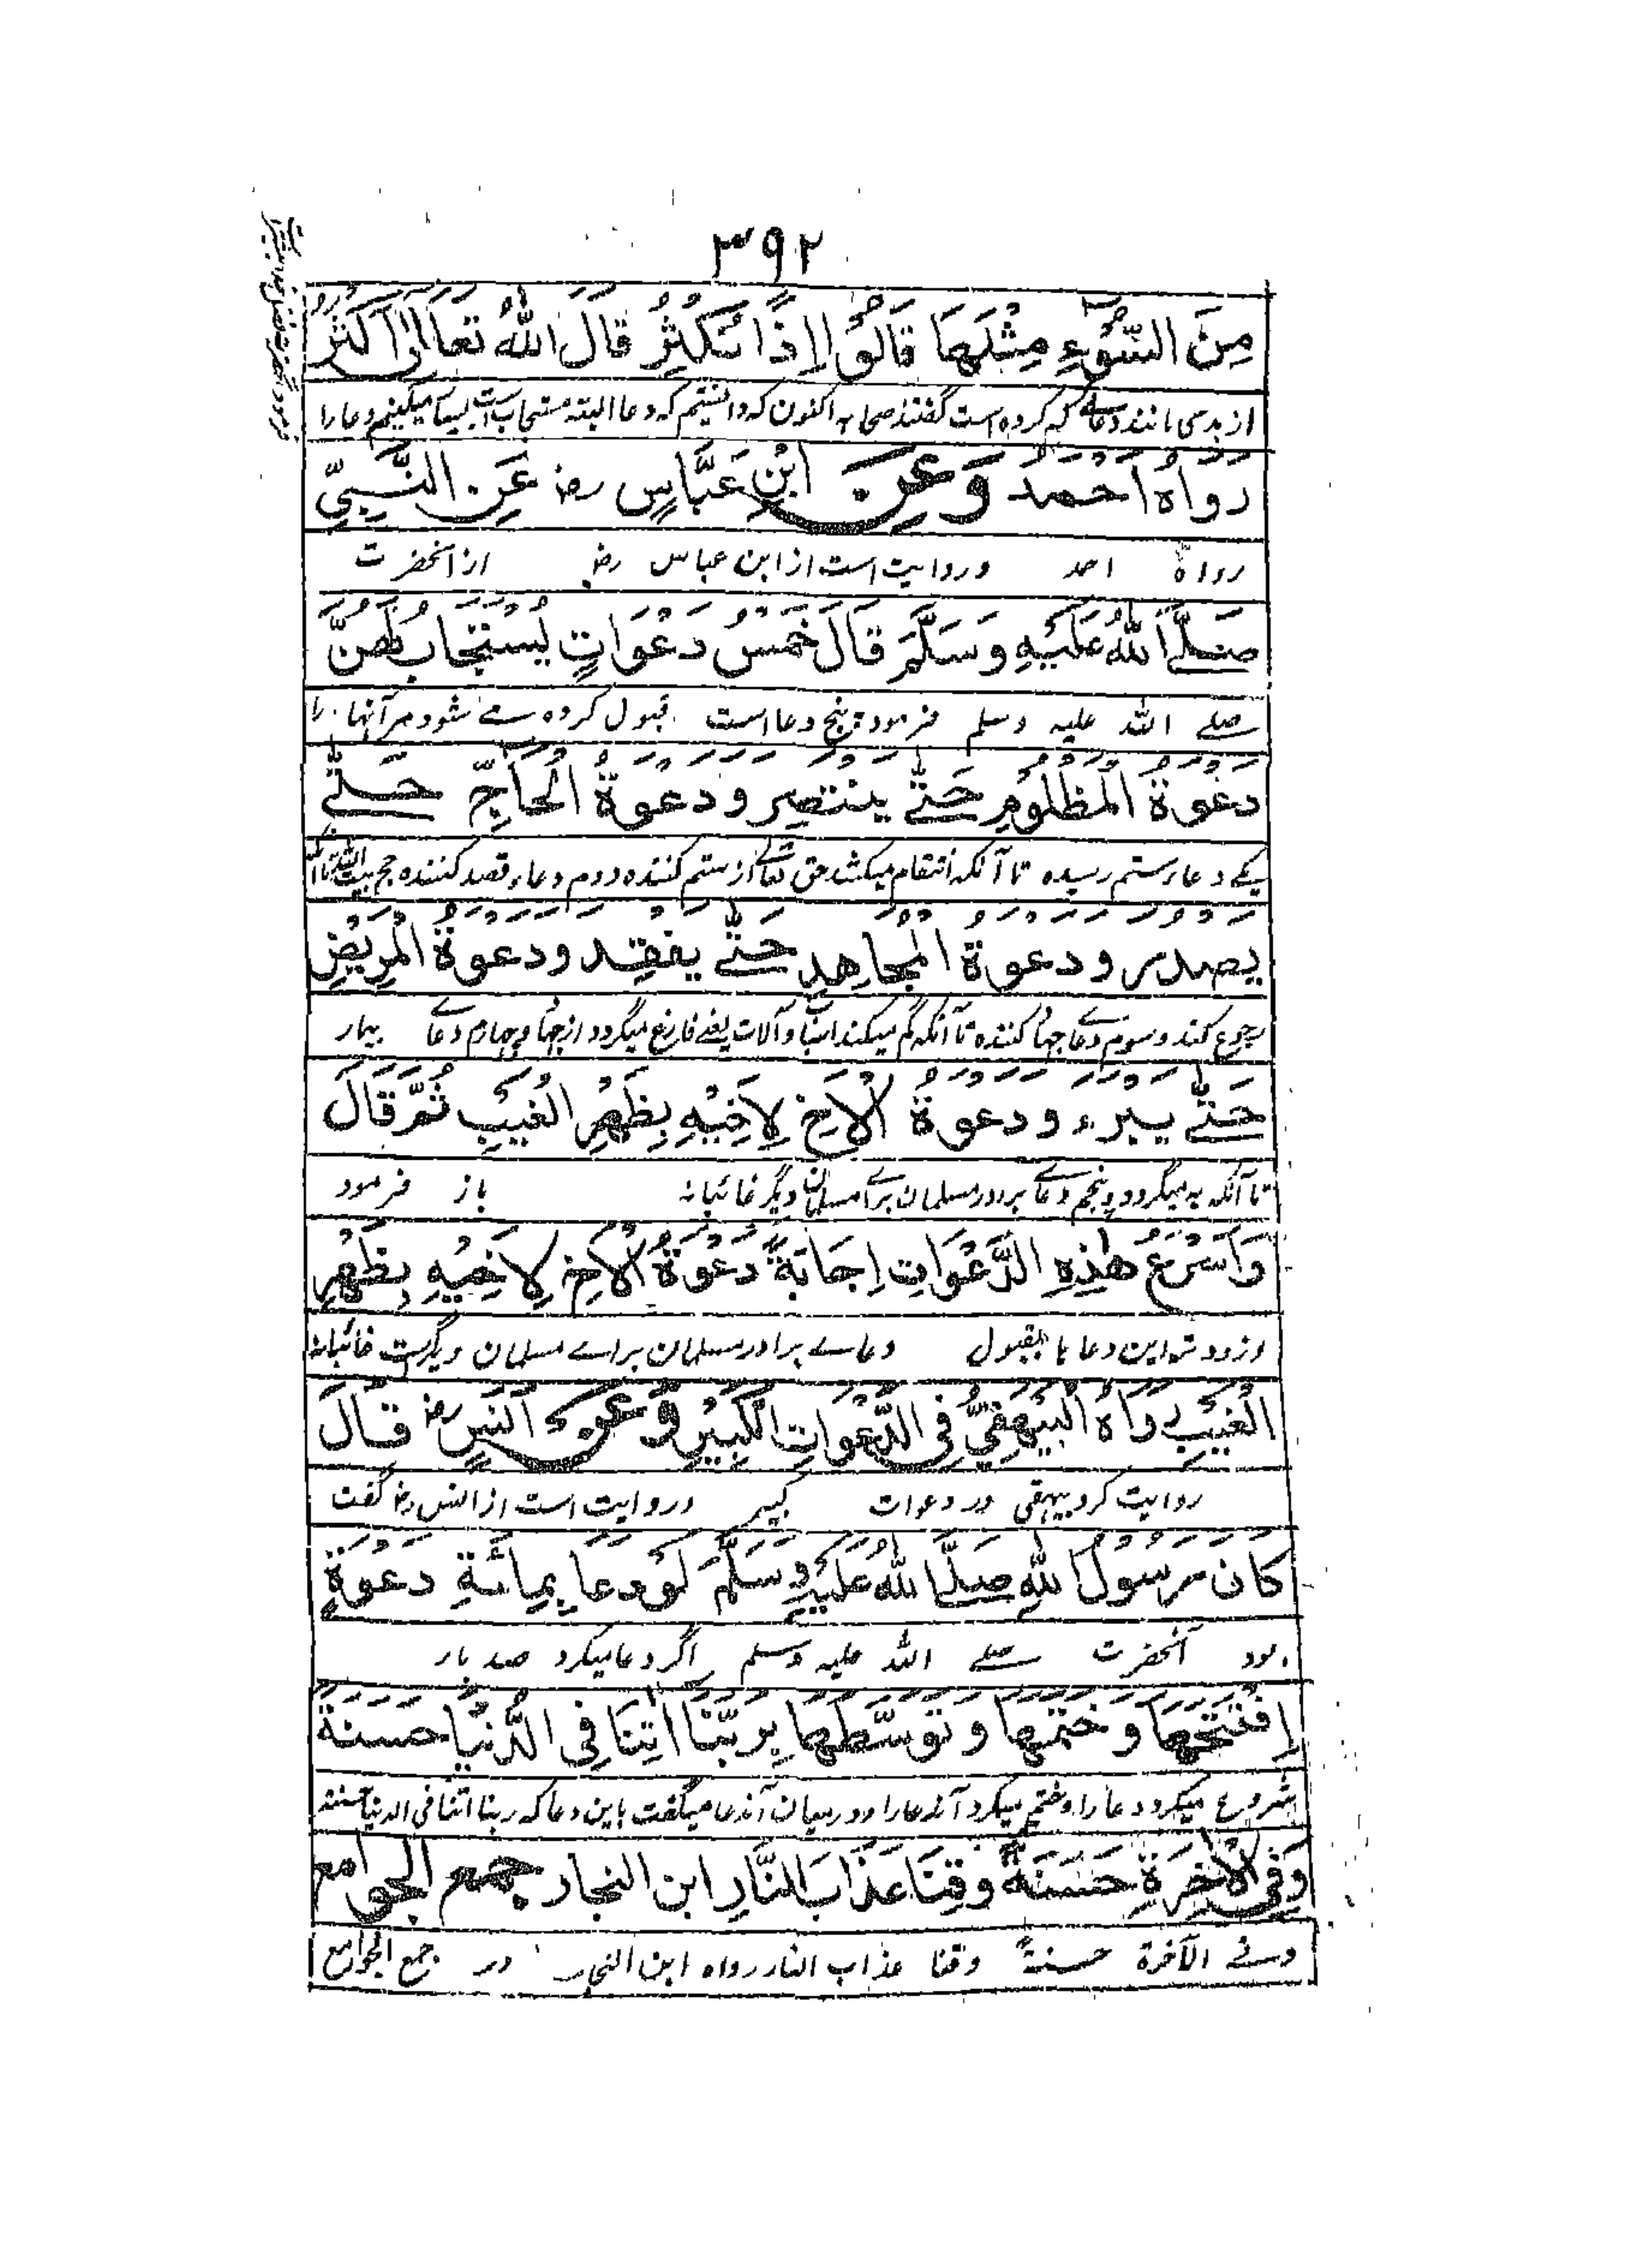 ۳۹۲
مِنَ السُّوْءِ مِثْلَهَا قَالُوْا إِذًا نُكْثِرُ قَالَ اللهُ تَعَالٰى اَكْثَرُ
از بدی مانند دعائے که کرده است گفتند صحابه اکنون که دانستیم که دعا البته مستجاب است بسیار میکنیم دعا را
رَوَاهُ اَحْمَدُ وَعَنِ ابْنِ عَبَّاسٍ رض عَنِ النَّبِيِّ
رواه احمد و روایت است از ابن عباس رض از آنحضرت
صَلَّى اللهُ عَلَيْهِ وَسَلَّمَ قَالَ خَمْسُ دَعَوَاتٍ يُسْتَجَابُ لَهُنَّ
صلے الله علیه وسلم فرمود پنج دعا است قبول کرده مے شود مر آنها را
دَعْوَةُ الْمَظْلُوْمِ حَتّٰى يَنْتَصِرَ وَدَعْوَةُ الْحَاجِّ حَتّٰى
یکے دعاء ستم رسیده تا آنکه انتقام میکشد حق تعالے از ستم کننده دوم دعاء قصد کننده حج بیت الله تا آنکه
يَصْدُرَ وَدَعْوَةُ الْمُجَاهِدِ حَتّٰى يَفْقِدَ وَدَعْوَةُ الْمَرِيْضِ
رجوع کند و سوم دعائے جهاد کننده تا آنکه گم میکند اسباب و آلات یعنے فارغ میگردد از جهاد و چهارم دعائے بیمار
حَتّٰى يَبْرَءَ وَدَعْوَةُ الْاَخِ لِاَخِيْهِ بِظَهْرِ الْغَيْبِ ثُمَّ قَالَ
تا آنکه به میگردد و پنجم دعائے برادر مسلمان برائے مسلمان دیگر غائبانه باز فرمود
وَاَسْرَعُ هٰذِهِ الدَّعَوَاتِ اِجَابَةً دَعْوَةُ الْاَخِ لِاَخِيْهِ بِظَهْرِ
و زودتر این دعا ها بقبول دعاے برادر مسلمان براے مسلمان دیگر ست غائبانه
الْغَيْبِ رَوَاهُ الْبَيْهَقِيُّ فِى الدَّعَوَاتِ الْكَبِيْرِ وَعَنْ اَنَسٍ رض قَالَ
روایت کرد بیهقی در دعوات کبیر و روایت است از انس رض گفت
كَانَ رَسُوْلُ اللهِ صَلَّى اللهُ عَلَيْهِ وَسَلَّمَ لَوْ دَعَا بِمِائَةِ دَعْوَةٍ
بود آنحضرت صلے الله علیه وسلم اگر دعا میکرد صد بار
اِفْتَتَحَهَا وَخَتَمَهَا وَتَوَسَّطَهَا بِرَبَّنَا اٰتِنَا فِى الدُّنْيَا حَسَنَةً
شروع میکرد دعا را و ختم میکرد آن دعا را و در میان آن دعا میگفت باین دعا که ربنا اتنا فی الدنیا حسنة
وَفِى الْاٰخِرَةِ حَسَنَةً وَقِنَا عَذَابَ النَّارِ ابن النجار جمع الجوامع
وفے الآخرة حسنة وقنا عذاب النار رواه ابن النجار در جمع الجوامع